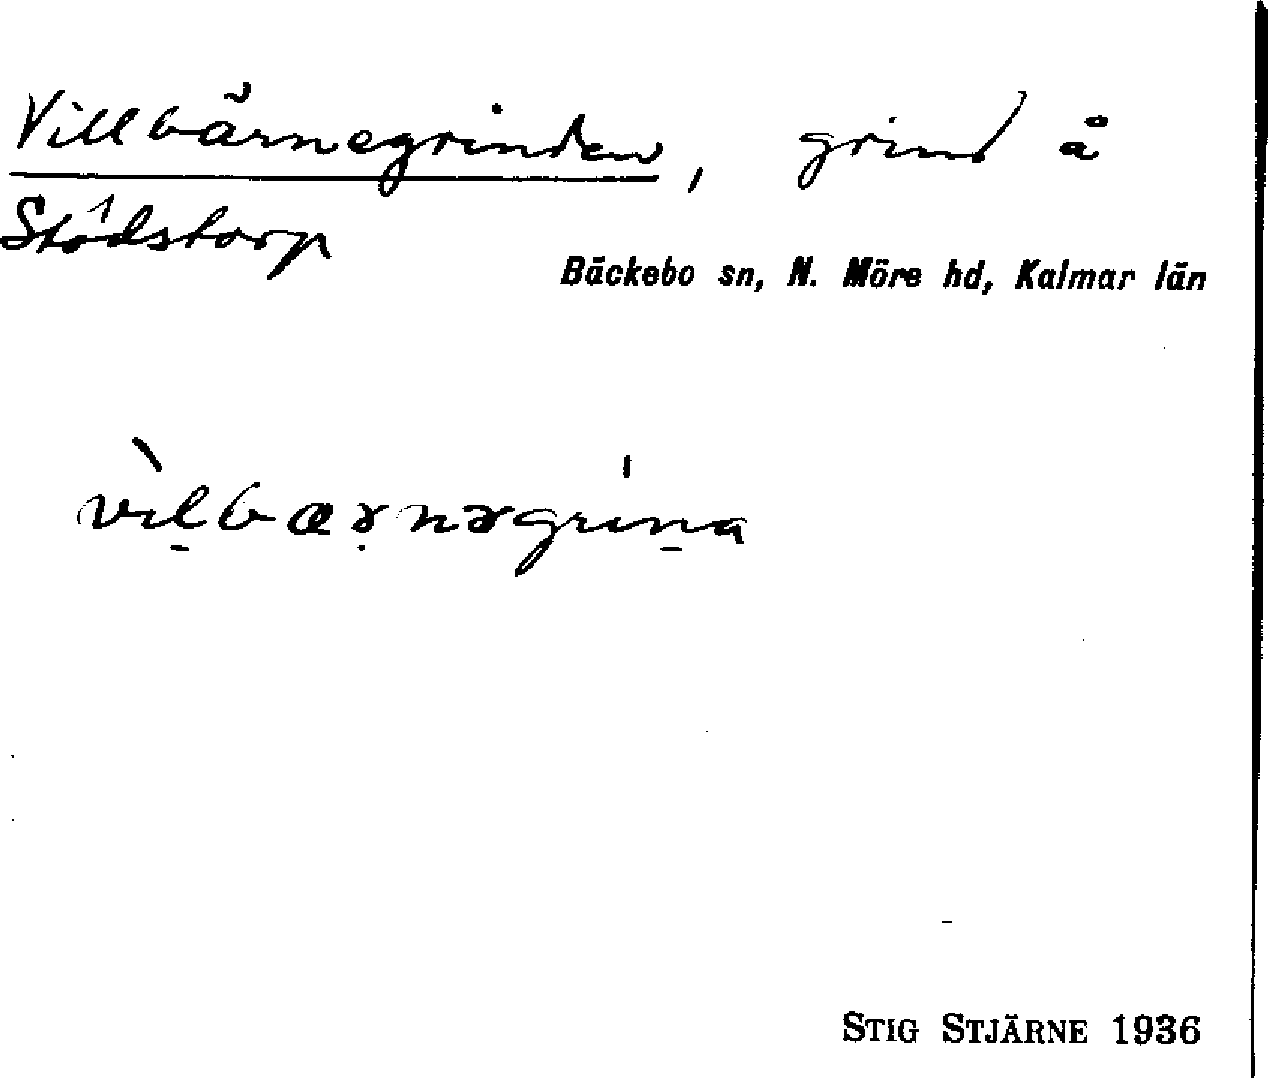 Villbärnegrinden, grind å
Stödstorp
Bäckebo sn, N. Möre hd, Kalmar län
STIG STJÄRNE 1936